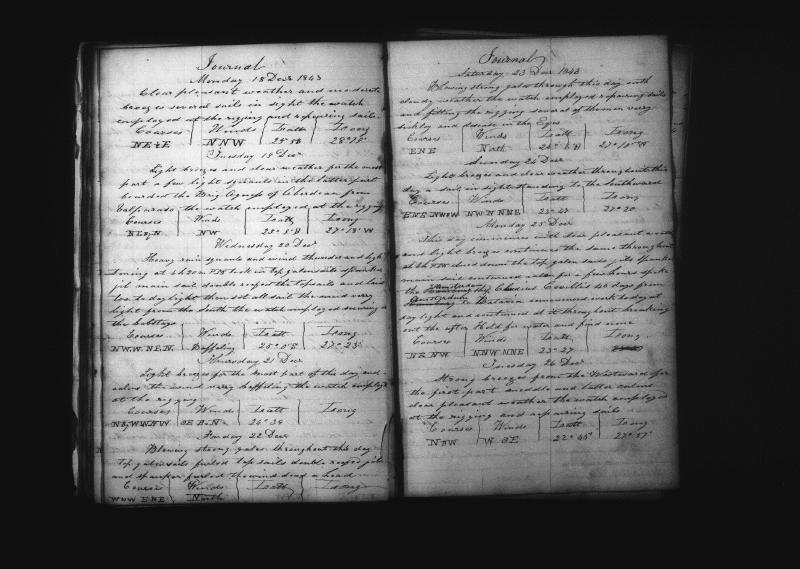 Journal
Monday 18 Decr 1843
Clear pleasant weather and moderate
breezes several sails in sight the watch
employed at the rigging and repairing sails
Courses Winds Latt Long
NE & E NNW 28°
Tuesday 19 Decr
Light breezes and clear weather for the most
part a few light squalls in the latter part
boarded the Brig Agness of Aberdeen from
Valparaso the watch employed at the rigging
Courses Winds Latt Long
NW
Wednesday 20 Decr
Heavy rain squals and wind thunder and light
ning at 1h 20m P.M. took in top galansails spanker
jib main sail double reeft the topsails and laid
too to day light then set all sail the wind very
light from the South the watch employed
the bobstays
Courses Winds Latt Long
NW.W. N.E.N. Baffeling
Thursday 21 Decr
Light breezes for the most part of the day and
calms the wind very baffeling the watch employed
at the rigging
Courses Winds Latt Long
Friday 22 Decr
Blowing strong gales throughout this day
top galansails furled top sails double reefed jib
and spanker furled the wind dead a head
Courses Winds Latt Long
WNW ENE North
Journal
Saturday 23 Decr 1843
Blowing strong gales through this day with
cloudy weather the watch employed repairing sails
and fitting the rigging several of the men very
sickly and in the Eyes
Courses Winds Latt Long
ENE North
Sunday 24 Decr
Light breezes and clear weather throughout this
day a sail in sight standing to the Southward
Courses Winds Latt Long
ENE NWbW NW NNE
Monday 25 Decr
This day commences with clear pleasant weather
and light breezes continues the same throughout
at P.M. clued down the top galan sails, jib spanker
main sail for a few hours spoke
the Ship Claudius 40 days from
Amsterdam to Batavia commenced work to day at
day light and continued at it throughout breaking
out the after Hold for water and find none
Courses Winds Latt Long
NE NW NNW NNE
Tuesday 26 Decr
Strong breezes from the Westward for
the first part middle and latter calms
clear pleasant weather the watch employed
at the rigging and repairing sails
Courses Winds Latt Long
NBW W SE